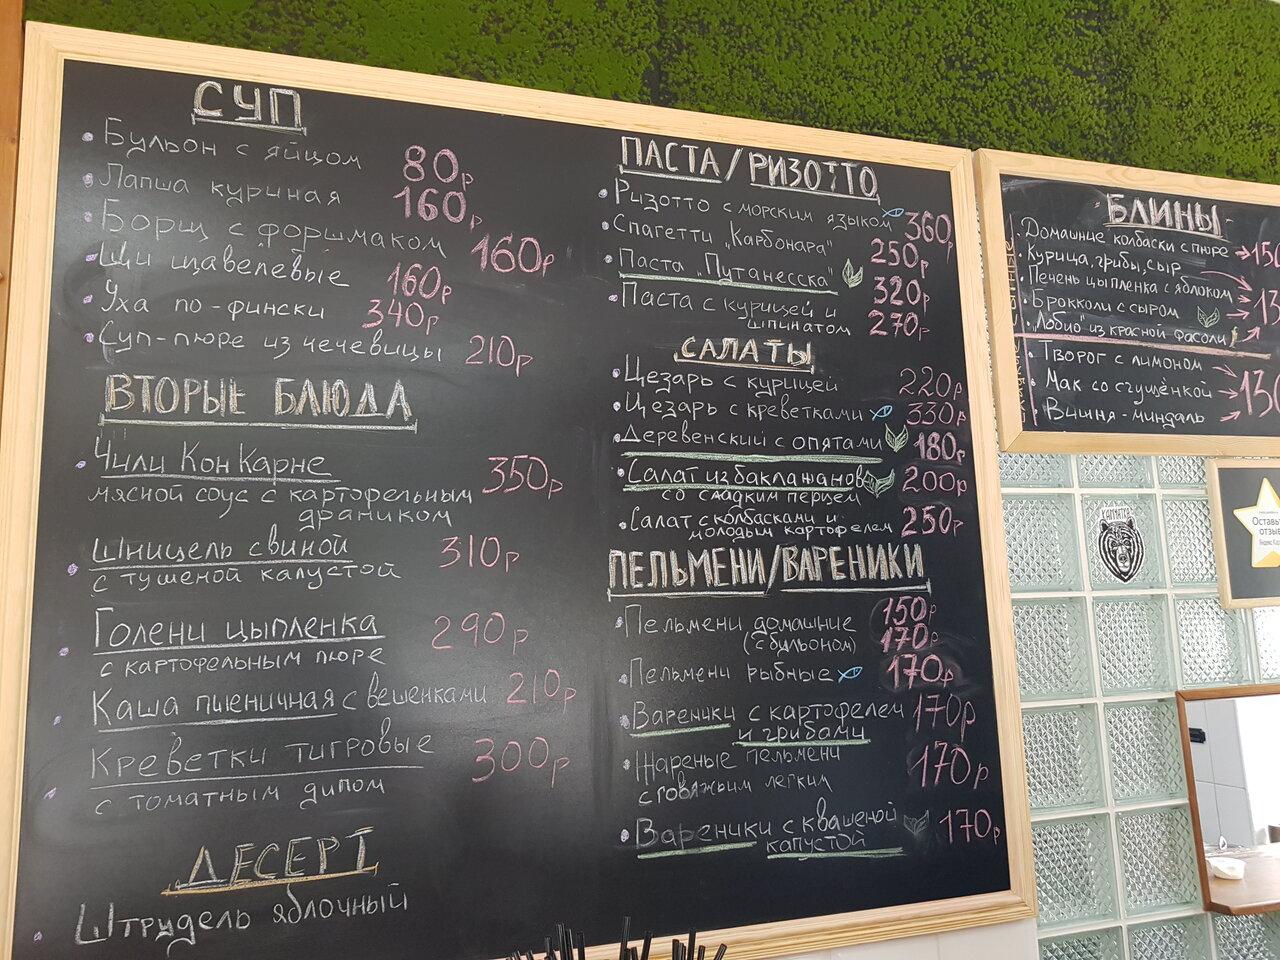 СУП
Бульон с яйцом 80р
Лапша куриная 160р
Борщ с форшмаком 160р
Щи щавелевые 160р
Уха по-фински 340р
Суп-пюре из чечевицы 210р
ВТОРЫЕ БЛЮДА
Чили Кон Карне 350р
мясной соус с картофельным
драником
Шницель свиной 310р
с тушеной капустой
Голени цыпленка 290р
с картофельным пюре
Каша пшеничная с вешенками 210р
Креветки тигровые 300р
с томатным дипом
ДЕСЕРТ
Штрудель яблочный
ПАСТА/РИЗОТТО
Ризотто с морским языком 360р
Спагетти „Карбонара" 250р
Паста „Путанесска" 320р
Паста с курицей и
шпинатом 270р
САЛАТЫ
Цезарь с курицей 220р
Цезарь с креветками 330р
Деревенский с опятами 180р
Салат из баклажанов 200р
со сладким перцем
Салат с колбасками и 250р
молодым картофелем
ПЕЛЬМЕНИ/ВАРЕНИКИ
Пельмени домашние 150р
(с бульоном) 170р
Пельмени рыбные 170р
Вареники с картофелем 170р
и грибами
Жареные пельмени 170р
с говяжьим легким
Вареники с квашеной 170р
капустой
БЛИНЫ
Домашние колбаски с пюре
Курица, грибы, сыр
Печень цыпленка с яблоком
Брокколи с сыром
„Лобио" из красной фасоли
Творог с лимоном
Мак со сгущёнкой
Вишня-миндаль